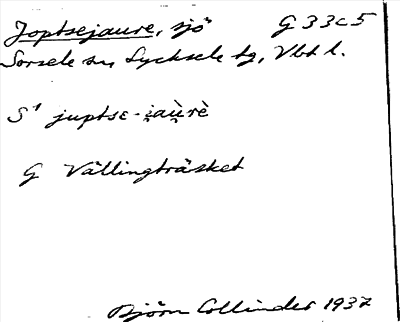 Joptsejaure, sjö G 33c5
Sorsele sn, Lycksele tg, Vbt l.
S¹ juptsɛ-i̯au̯rè
G Vällingträsket
Björn Collinder 1937